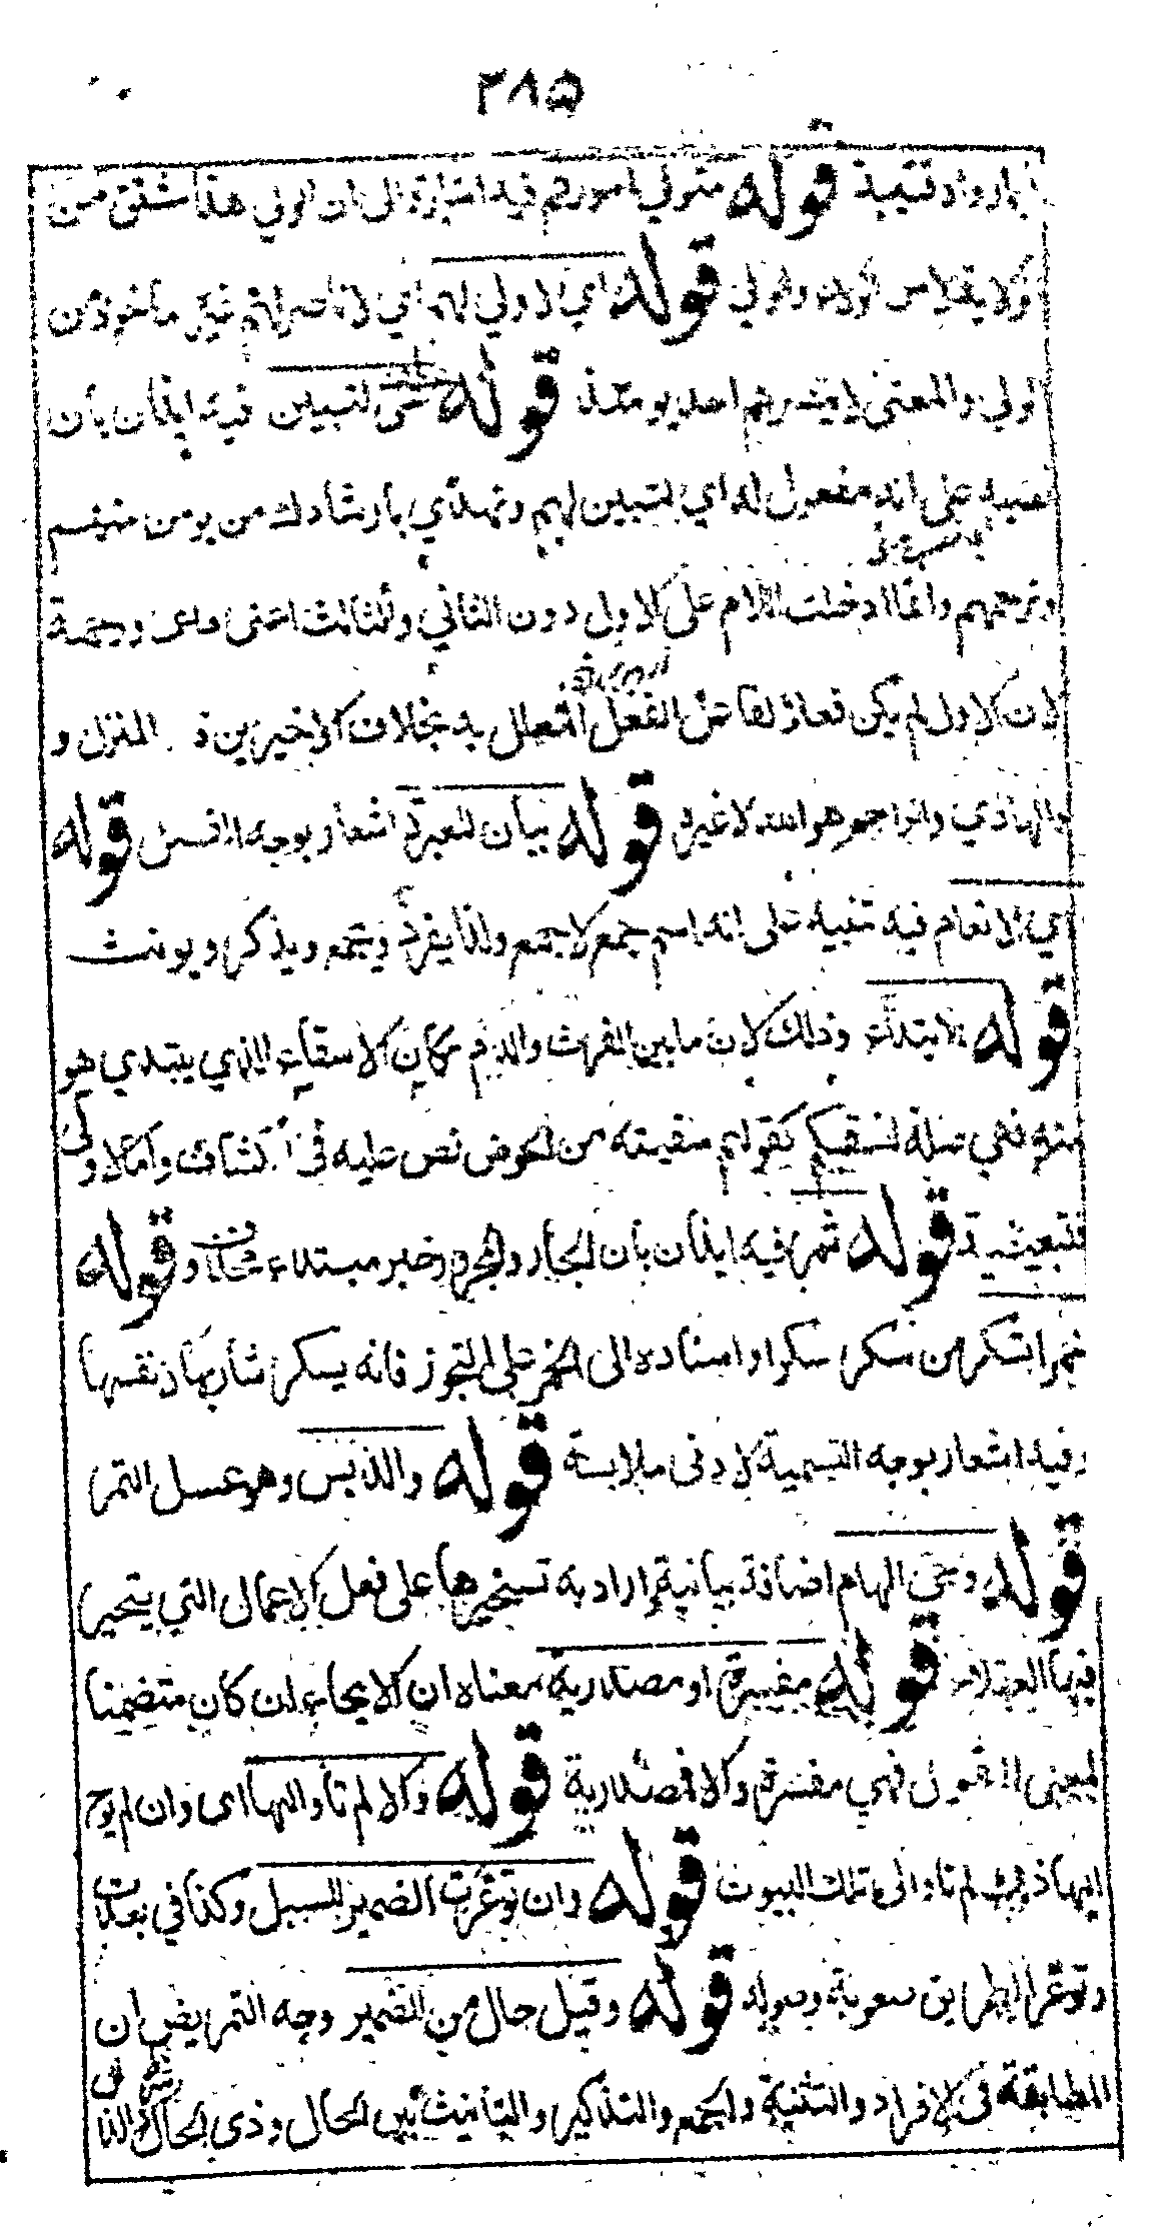 ٢٨٥
قوله متولي امورهم فيه اشارة الى ان الولي هنا اشتق من
قوله اي لا ولي لهم اي لا ناصر لهم غير مأخوذ من
الولي والمعنى لا ينصرهم احد يومئذ قوله على لتبيين فيه ايذان بأن
نصبه على انه مفعول له اي لتبيين لهم وتهدي بارشادك من يومن منهم
وترحمهم وانما ادخلت اللام على الاول دون الثاني والثالث اعنى هدى ورحمة
لان الاول لم يكن فعلا لفاعل الفعل المعلل به بخلاف الاخيرين المنزل و
والهادي والراحم هو الله لا غيره قوله بيان للعبرة اشعار بوجه قوله
اي الانعام فيه تنبيه على انه اسم جمع لا جمع ولذا يفرد ويجمع ويذكر ويونث
قوله لابتداء وذلك لان ما بين الفرث والدم مكان الاسقاء الذي يبتدي هو
منه فهي صلة لنسقيكم كقولهم سقيته من الحوض نص عليه في الكشاف واما الاولى
فتبعيضية قوله ثمر فيه ايذان بأن الجار والمجرور خبر مبتداء محذوف و قوله
خمرا تسكر من سكر سكرا واسناده الى الخمر على التجوز فانه يسكر شاربها نفسها
وفيه اشعار بوجه التسمية لادنى ملابسة قوله والدبس وهو عسل التمر
قوله وحي الهام اضافة بيانية اراد به تسخيرها على فعل الاعمال التي يتحير
فيها العقلاء قوله مفسرة او مصدرية معناه ان الايحاء ان كان متضمنا
لمعنى القول فهي مفسرة والا فمصدرية قوله والا لم تأو اليها اى وان لم يوح
اليها ذلك لم تأو الى تلك البيوت قوله وان توعرت الضمير للسبيل وكذا في بعدت
وتوعر الطريق صعوبة وصوله قوله وقيل حال من الضمير وجه التمريض ان
المطابقة في الافراد والتثنية والجمع والتذكير والتأنيث بين الحال وذي الحال